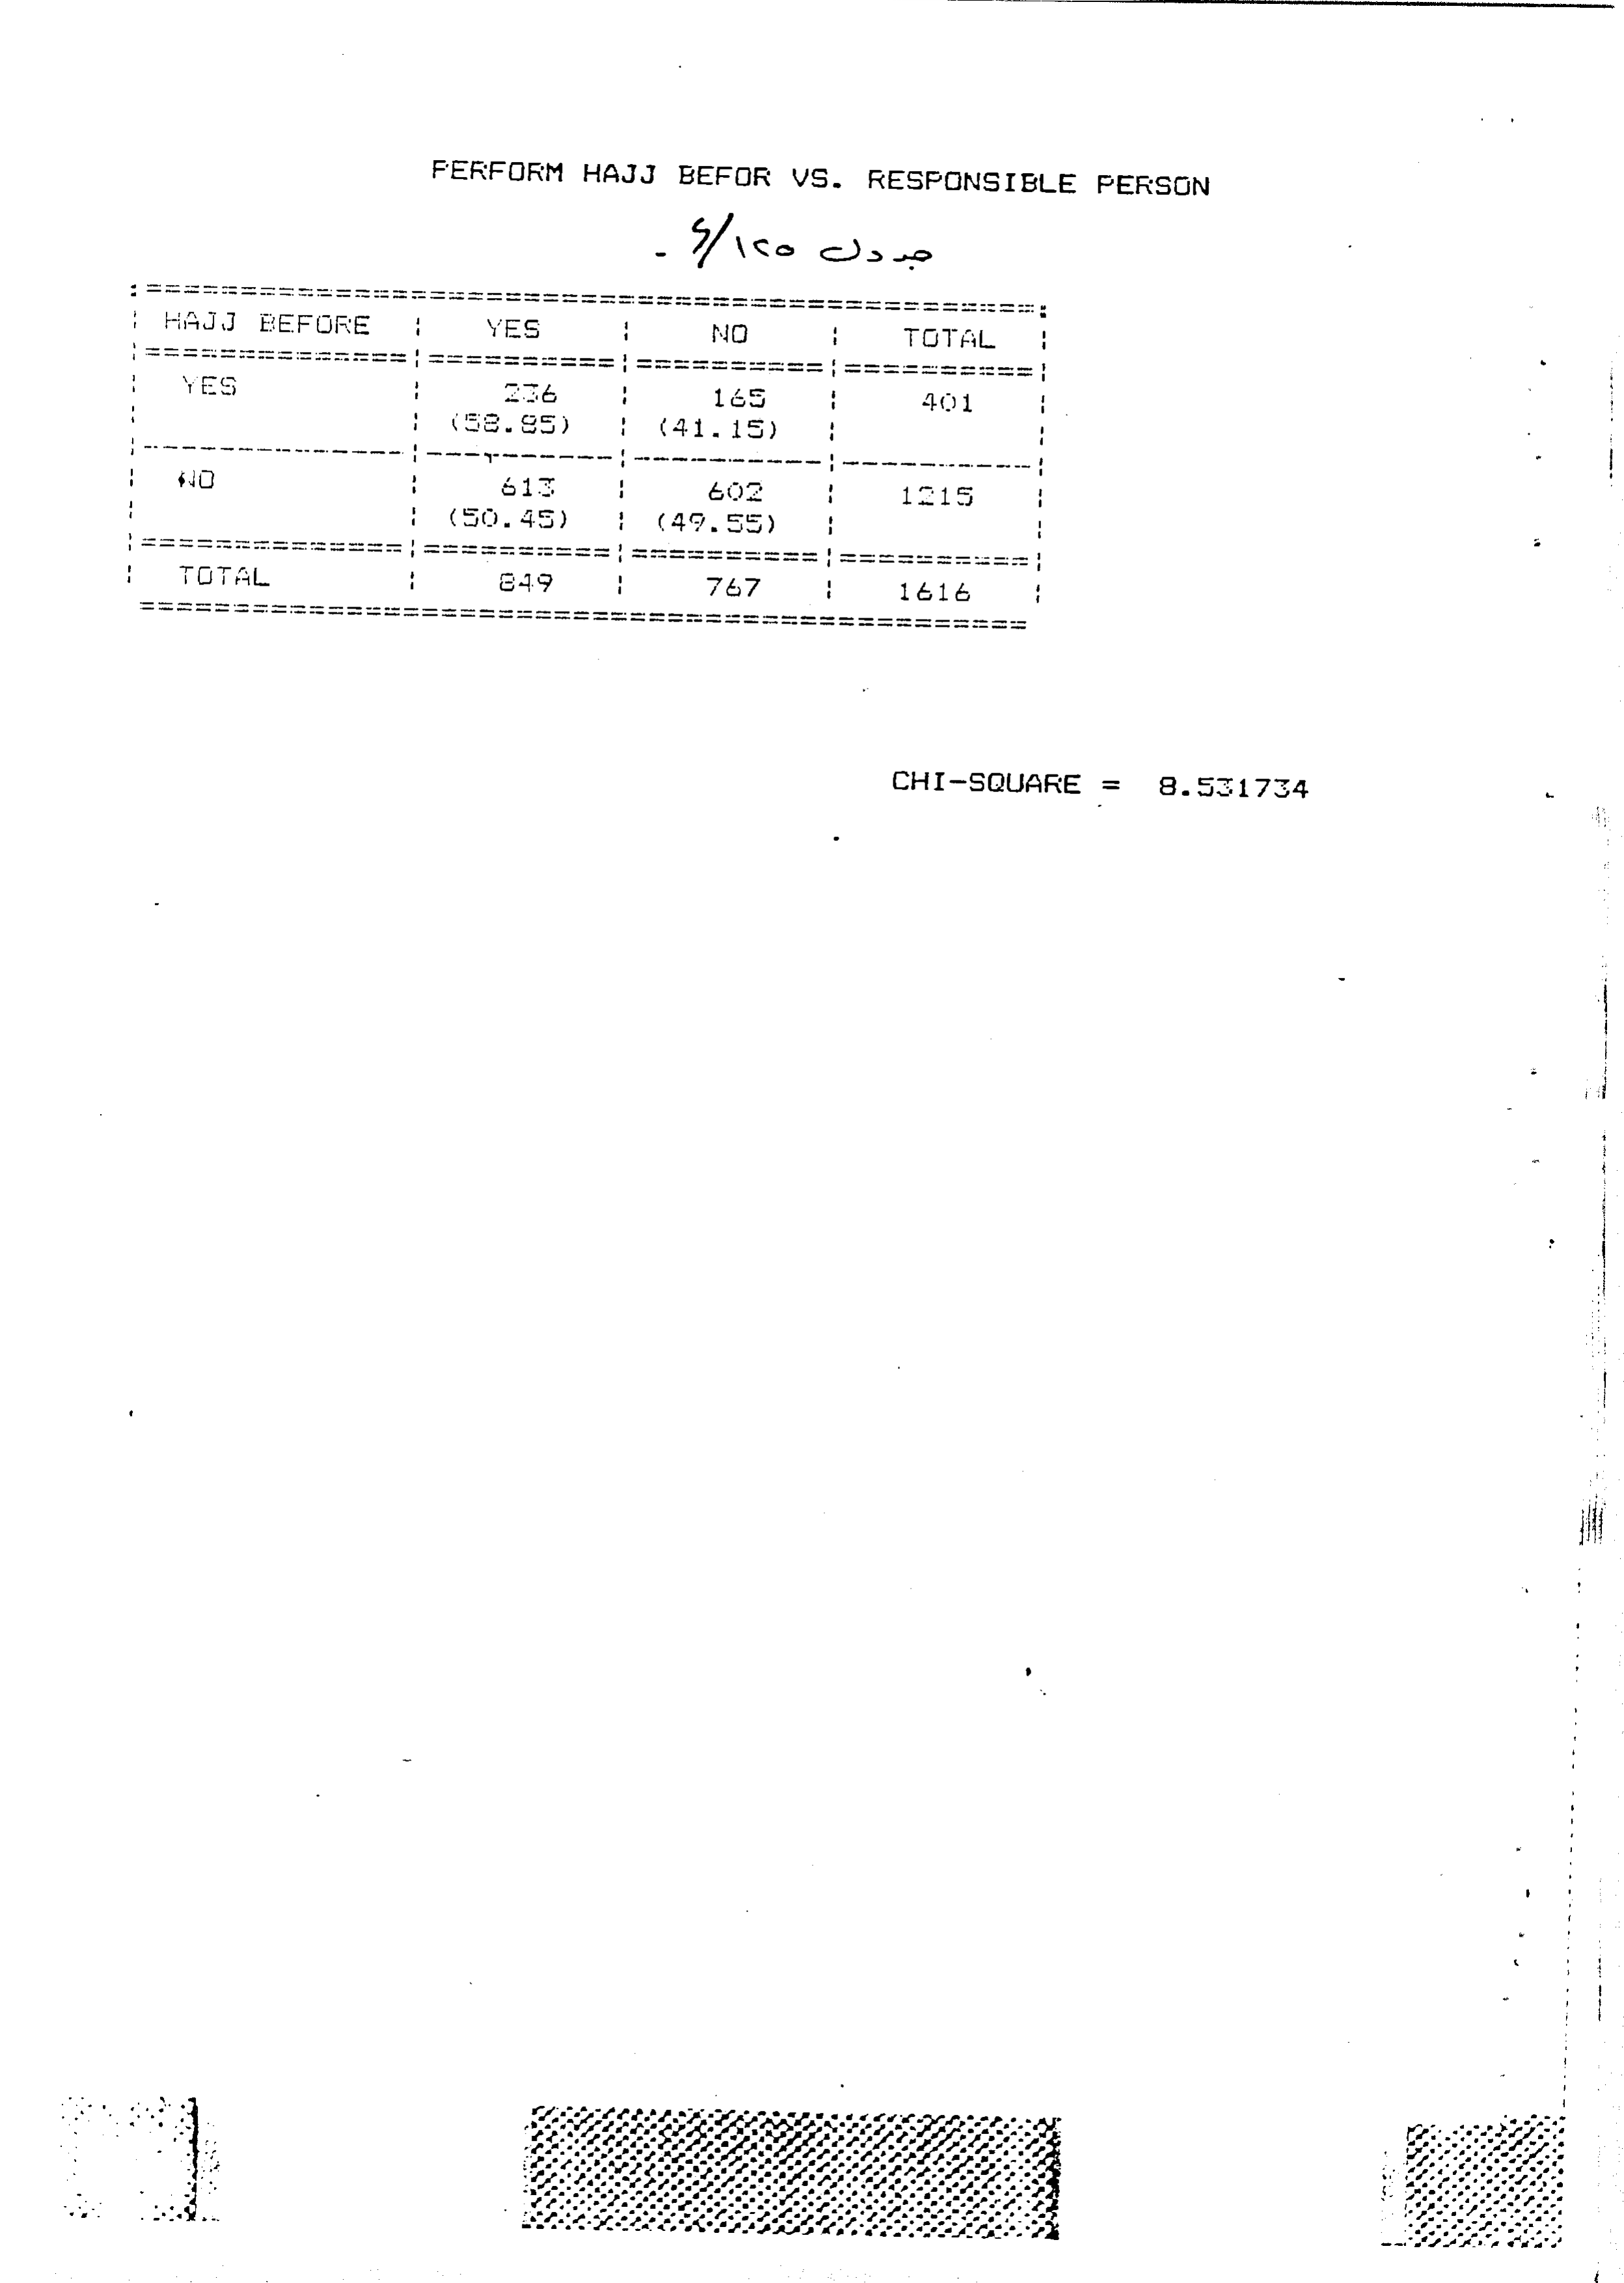 PERFORM HAJJ BEFOR VS. RESPONSIBLE PERSON
جدول ١٢٥/
HAJJ BEFORE YES NO TOTAL
YES 236 165 401
(58.85) (41.15)
NO 613 602 1215
(50.45) (49.55)
TOTAL 849 767 1616
CHI-SQUARE = 8.531734